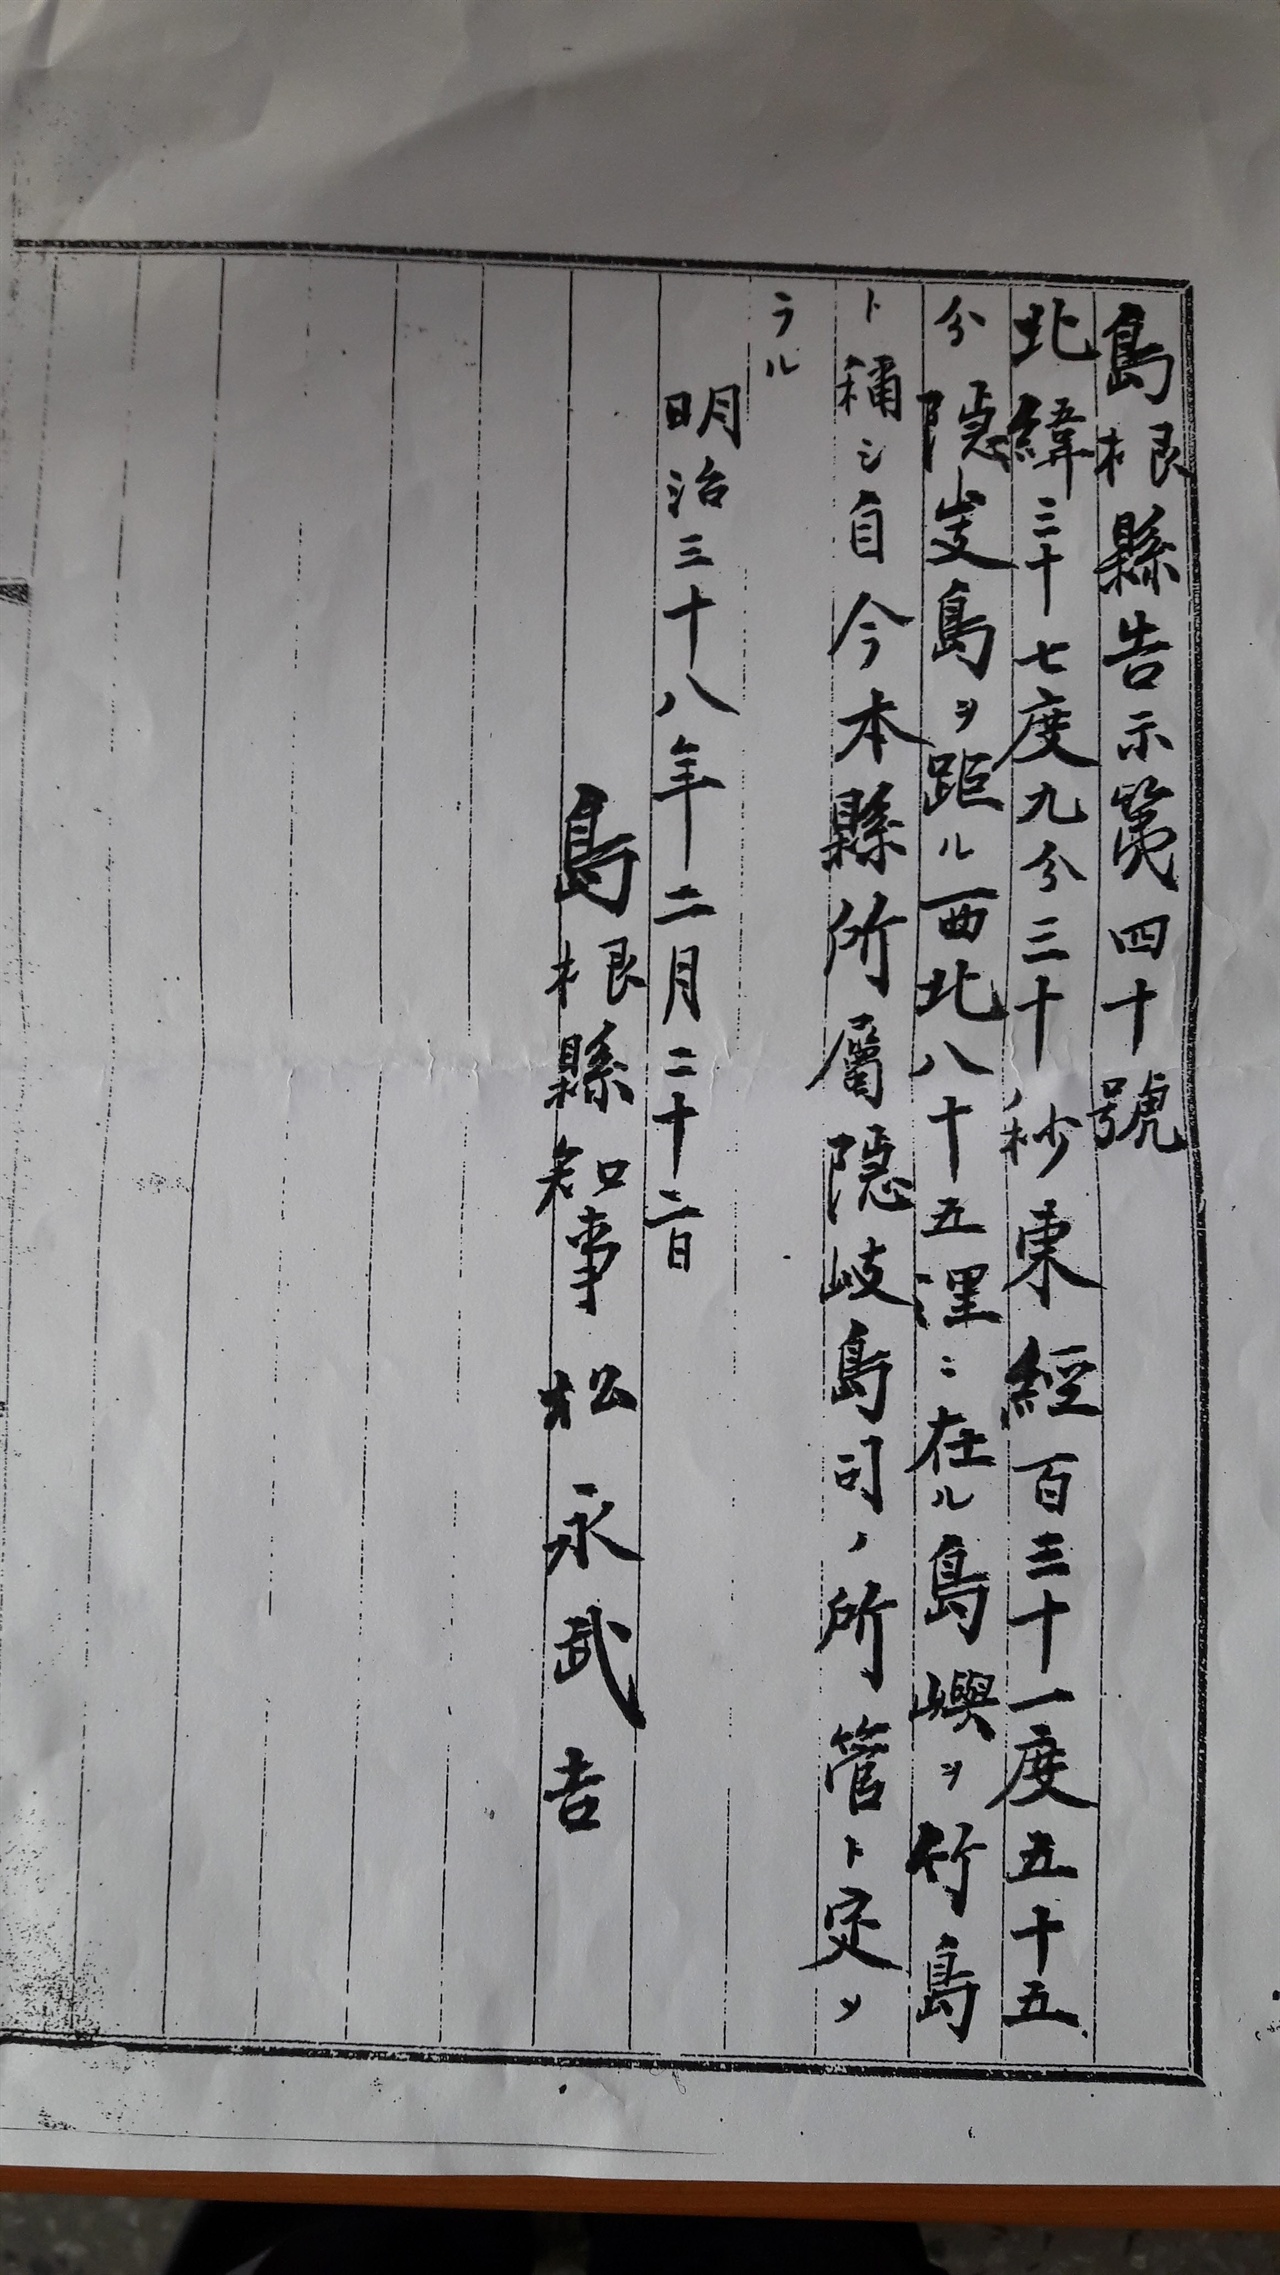 島根縣告示第四十號
北緯三十七度九分三十秒東經百三十一度五十五
分隠岐島ヲ距ル西北八十五浬ニ在ル島嶼ヲ竹島
ト稱シ自今本縣所屬隠岐島司ノ所管ト定メ
ラル
明治三十八年二月二十二日
島根縣知事松永武吉